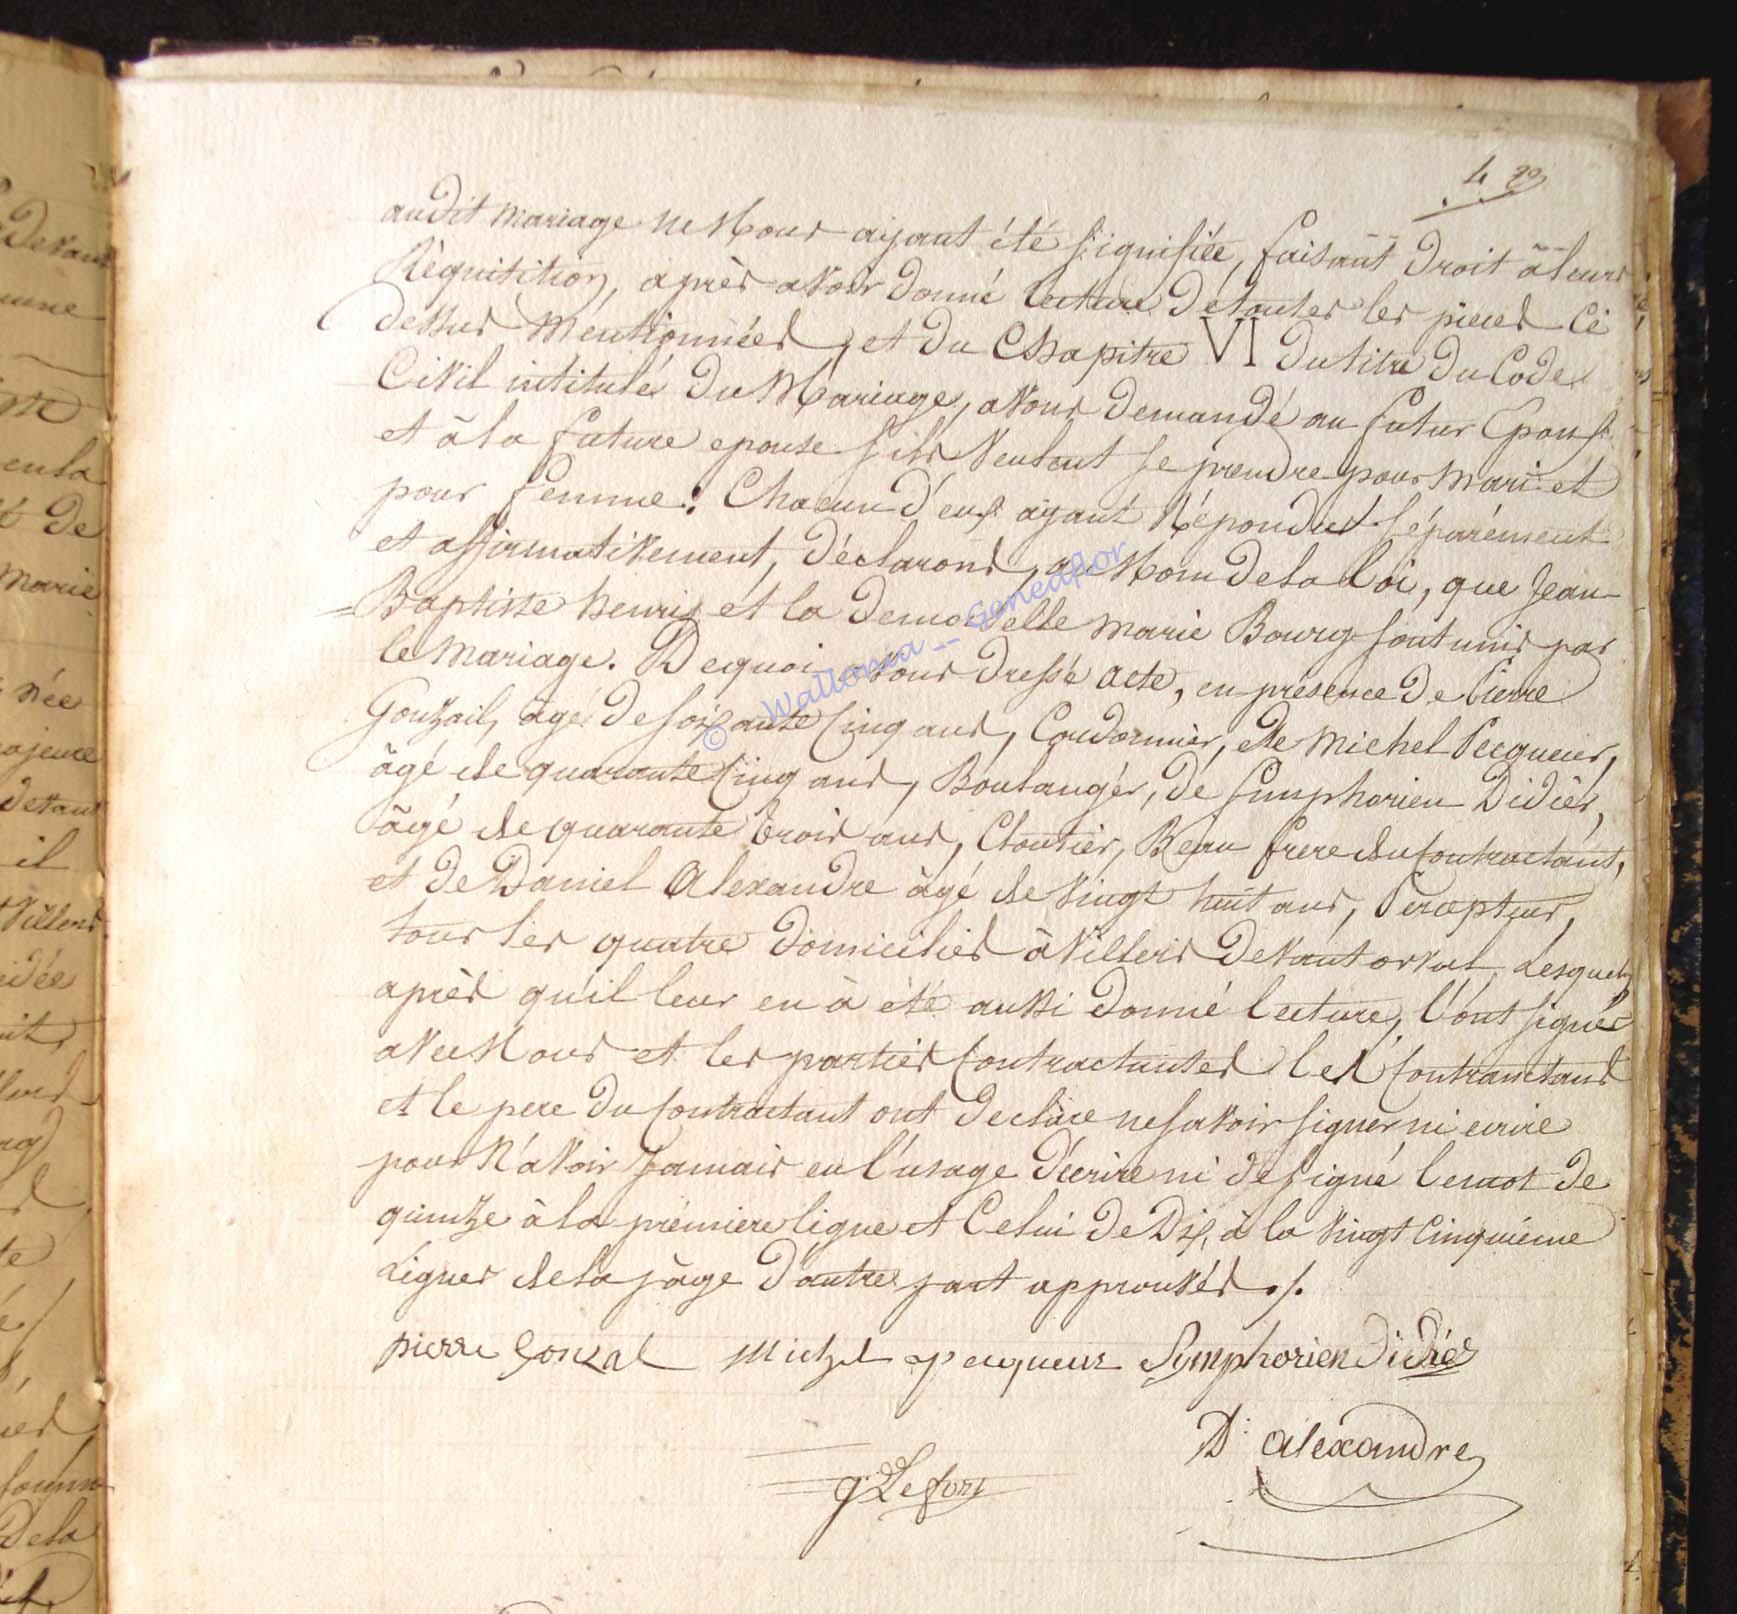 4
audit mariage ne Nous ayant été signifiée, faisant droit à leurs
Réquitition, après avoir donné lecture de toutes les pieces Ci
dessus Mentionnées, et du Chapitre VI du titre du Code
Civil intitulé Du Mariage, avons demandé au futur Epoux
et à la future epouse s'ils veulent se prendre pour mari et
pour femme : Chacun d'eux ayant Répondus séparément
et affirmativement, déclarons, au Nom de la Loi, que Jean
Baptiste henris et la demoiselle marie Bourg sont unis par
le mariage. De quoi avons dressé acte, en présence de Pierre
Gonzail, âgé de soixante Cinq ans, Cordonnier, de Michel Pecqueur,
âgé de quarante Cinq ans, Boulangér, de Simphorien Didiér,
âgé de quarante trois ans, Cloutier, Beau frere du Contractant,
et de Daniel Alexandre âgé de vingt huit ans, Percepteur,
tous les quatre domiciliés à Villers devant orval, Lesquels
après qu'il leur en à été aussi donné lecture, l'ont signés
avec Nous et les parties Contractantes les Contranctans
et le pere du Contractant ont declaré ne savoir signer ni ecrire
pour N'avoir Jamais eu l'usage d'ecrire ni de signé le mot de
quinze à la prémiere ligne et Celui de Dix, à la vingt Cinquiéme
Lignes de la page d'autre part approuvés ./.
pierre gonzal Michel pecqueur Symphorien Didiér
D. alexandre
g. Lefort
© Wallonia -- Geneaflor